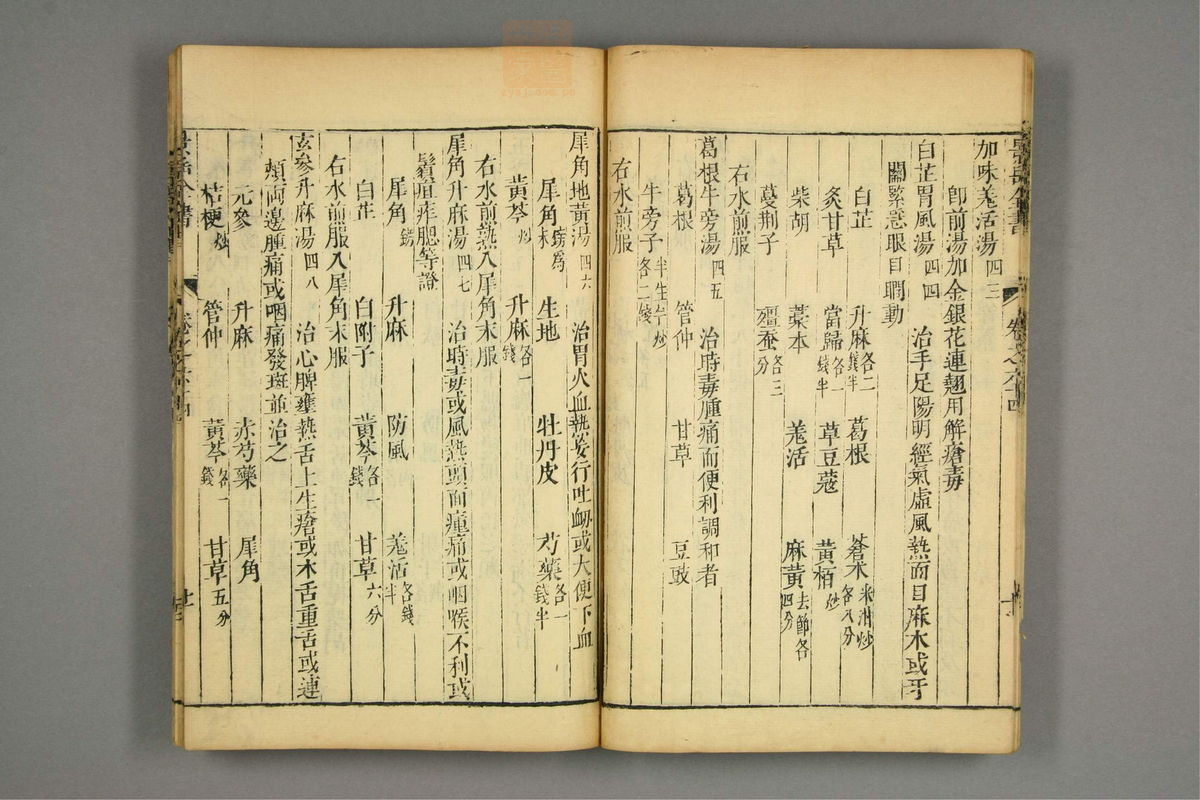 加味羗活湯 四三
即前湯加金銀花連翹用解瘡毒
白芷胃風湯 四四 治手足陽明經氣虛風熱面目麻木或牙
關緊急眼目瞤動
白芷 升麻各二錢半 葛根 蒼朮米泔炒各八分
炙甘草 當歸各一錢半 草豆蔻 黃栢炒
柴胡 藁本 羗活 麻黃去節各四分
蔓荆子 殭蚕各三分
右水煎服
葛根牛旁湯 四五 治時毒腫痛而便利調和者
葛根 管仲 甘草 豆豉
牛旁子半生半炒各二錢
右水煎服
犀角地黃湯 四六 治胃火血熱妄行吐衂或大便下血
犀角鎊爲末 生地 牡丹皮 芍藥各一錢半
黃芩炒 升麻各一錢
右水煎熱入犀角末服
犀角升麻湯 四七 治時毒或風熱頭面腫痛或咽喉不利或
鬢疽痄腮等證
犀角鎊 升麻 防風 羗活各錢半
白芷 白附子 黃芩各一錢 甘草六分
右水煎服入犀角末服
玄參升麻湯 四八 治心脾壅熱舌上生瘡或木舌重舌或連
頰兩邊腫痛或咽痛發斑並治之
元參 升麻 赤芍藥 犀角
桔梗炒 管仲 黃芩各一錢 甘草五分